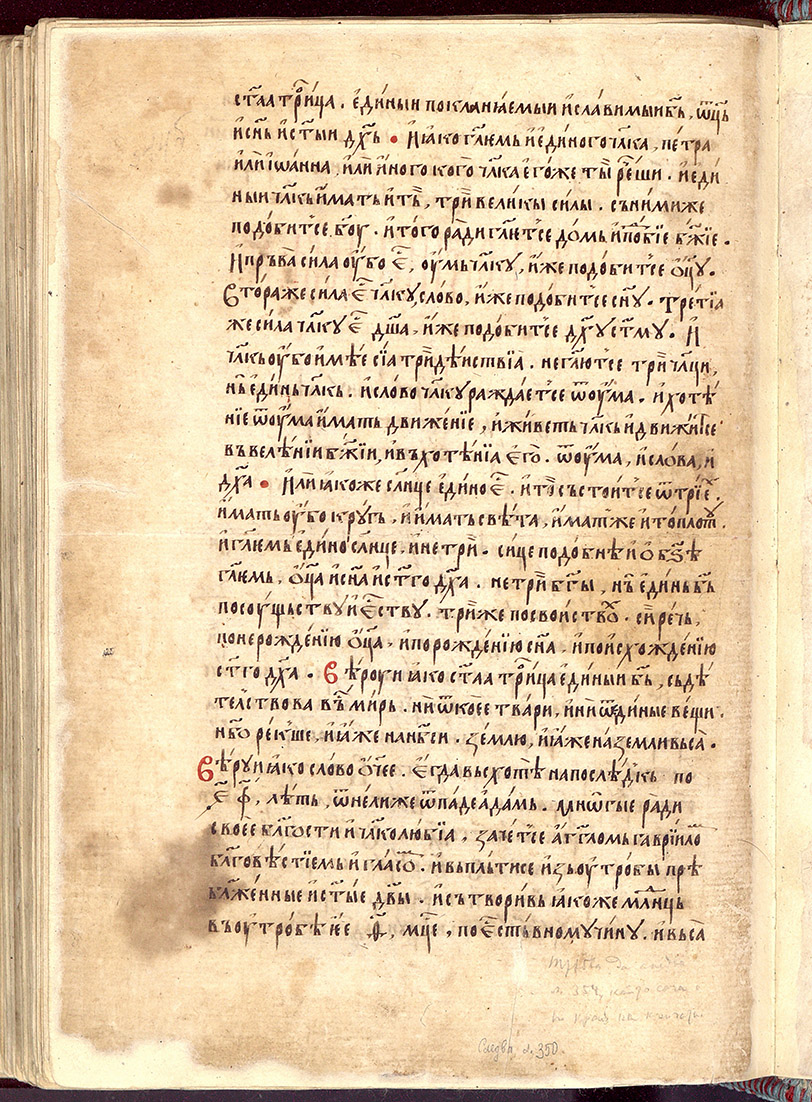 ст҃аа трⷪ҇ица . е҆ди́ныи покланꙗ́емыи и҆сла́вимыи бъ҃ , ѿц҃ь
и҆сн҃ь и҆ст҃ыи дх҃ь • И҆ꙗ́ко гл҃емь и҆е҆ди́ного чл҃ка , пе́тра
и҆лѝ і҆ѡа́нна , и҆лѝ и҆́ного ко́го чл҃ка е҆го́же ты̀ рече́ши . и҆еди́
ныи чл҃кь и҆́мать и҆тъ̀ , трѝ вели́кы си́лы . съ ни́миже
подо́бит᾽се б҃оу . и҆то́го ра́ди гл҃ет᾽се до́мь и҆подо́бїе б҃жїе .
И҆пръ́ва си́ла оу҆́бо е҆͡с , оу҆́мь чл҃ку , и҆́же подо́бит᾽се ѻ҆ц҃у .
Вто́ра же си́ла е҆͡с чл҃ку , сло́во , и҆́же подо́бит᾽се сн҃у . Тре́тїа
же си́ла чл҃ку е҆͡с дш҃а , и҆́же подо́бит᾽се дх҃у ст҃му . И҆
чл҃кь оу҆́бо и҆мѣ́е сїа̀ трѝ дѣ́иствїа . не гл҃ют᾽се трѝ чл҃ци ,
нъ̀ е҆ди́нь чл҃кь . и҆сло́во чл҃ку ражда́ет᾽се ѿоу҆́ма . и҆хотѣ́
нїе ѿоу҆́ма и҆́мать движе́нїе , и҆жи́веть чл҃кь и҆дви́жит᾽се
въ велѣ́нїи б҃жїи , и҆въ хотѣ́нїа е҆го̀ . ѿоу҆́ма , и҆сло́ва , и҆
дх҃а • И҆лѝ ꙗ́коже сл҃нце е҆ди́но е҆͡с . и҆то̀ състои́т᾽се ѿ трїе́х .
и҆́мать оу҆́бо кру́гъ , и҆и҆́мать свѣ́та , и҆́мат᾽же и҆топлоту̀ .
и҆гл҃емь е҆ди́но сл҃нце . и҆не трѝ . си́це подо́бнѣ и҆ ѻ҆ б҃ѕѣ
гл҃емь , ѻ҆ц҃а и҆сн҃а и҆ст҃го дх҃а . не трѝ б҃гы , нъ̀ е҆ди́нь бъ҃
посоу́щьству и҆е҆ст҃ву . три́же посво́иству . си́рѣчь ,
понерожде́нїю ѻ҆ц҃а , и҆порожде́нїю сн҃а , и҆поисхожде́нїю
ст҃го дх҃а . Вѣ́роуи ꙗ́ко ст҃аа трⷪ҇ица е҆ди́ныи бъ҃ , съдѣ́
тел᾽ствова въ̀сь ми́рь . нѝ ѿкое́е тва́ри , и҆нѝ ѿе҆ди́ные ве́щи .
н҃бо ре́к᾽ше , и҆ꙗ́же на нб҃еси . зе́млю , и҆ꙗ́же на́земли вьса̀ .
Вѣ́руи ꙗ́ко сло́во ѻ҆́чее . Е҆гда̀ въсхотѣ̀ на послѣ́дькь по
҂є҃ ф҃ , лѣ́ть , ѿне́лиже ѿпа́де а҆да́мь . мнѡ́гые ра́ди
свое́е бл҃гости и҆чл҃колю́бїа , зачет᾽се а҆́гг҃ломь гаврїи́ло
бл҃говѣ́стїемь и҆гла́со . и҆вьпльти́се и҆зьоу҆тро́бы прѣ
бл҃же́нные и҆ст҃ые дв҃ы . и҆сътвори́вь ꙗ́коже мл҃нць
въ оу҆тро́бѣ е҆́е ҃ѳ , мц҃е , по е҆сть́вномучи́ну . и҆вьса̀
Следва л. 350.